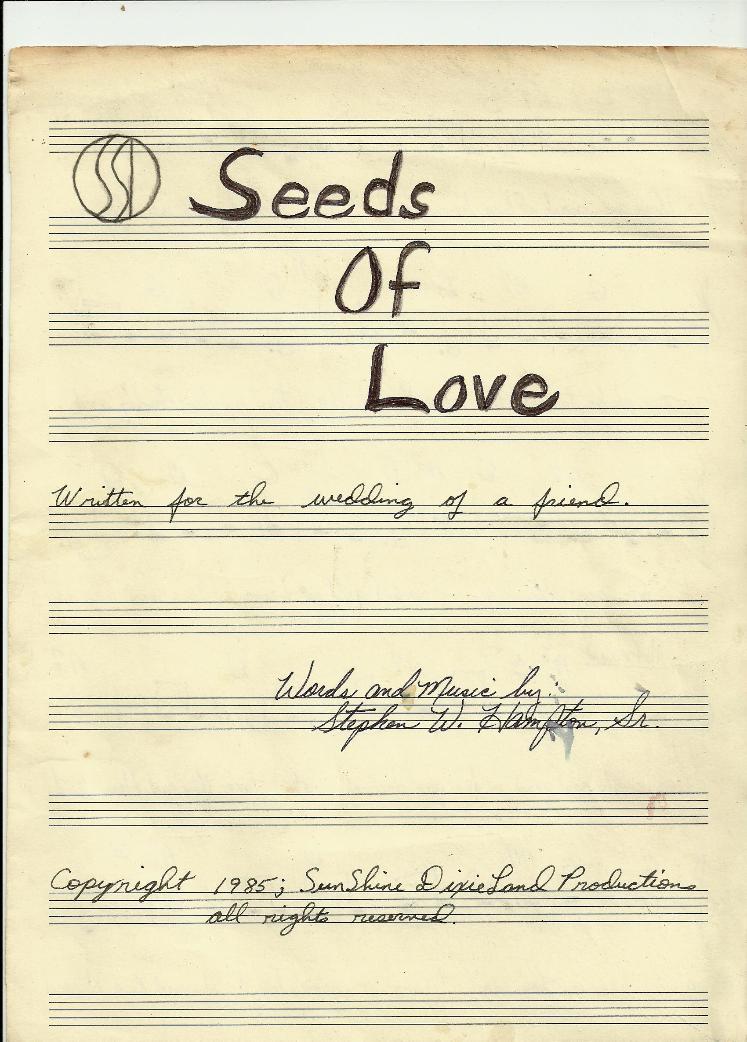 SSD
Seeds
Of
Love
Written for the wedding of a friend.
Words and Music by:
Stephen W. Hampton, Sr.
Copyright 1985; SunShine DixieLand Productions
all rights reserved.